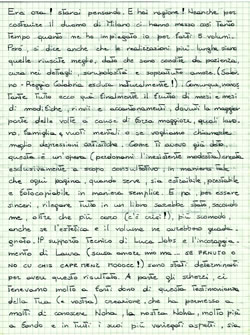 Era ora! starai pensando. E hai ragione! Neanche per
costruire il duomo di Milano ci hanno messo così tanto
tempo quanto me ho impiegato io per tutti e volumi.
Però, si dice anche che le realizzazioni più lunghe siano
quelle riuscite meglio, date che sono condite da pazienza,
cura nei dettagli, scrupolosità e soprattutto amore. (Salerno
- Reggio Calabria esclusa naturalmente!). Comunque, mesi
tante ecco qui finalmente il frutto di mesi e mesi
di modifiche, rinvii e accantonamenti, dovuti la maggior
parte delle volte a causa di forza maggiore, quali lavoro,
famiglia e vuoti mentali o se vogliamo chiamarle
meglio depressioni artistiche. Come ti avevo già dato,
questa è un opera (perdonami l'inesistente modestia) creata
esclusivamente a scopo consultativo in maniera tale
che ogni pagina, quando serve sia estraibile, possibile
e fotocopiabile in maniera semplice. E poi, per essere
sinceri, rilegare tutto in un libro sarebbe stato secondo
me, oltre che più caro (c'è crisi!), più scomodo
anche se l'estetica e il volume ne avrebbero guadagnato.
Il supporto tecnico di Luca Jobs e l'incoraggiamento
di Laura (scusa amore mm ma se FENUTO o
NO CU CHIS CAPE 'MENE FOOOCC!) sono stati determinanti
per avere questo risultato. A parte gli scherzi, ci
tenevamo molto a farti dono di questa testimonianza
della Tua (e vostra) creazione, che ha permesso a
molti di conoscere Noha, la nostra Noha, molto più
a fondo e in tutti i suoi più variegati aspetti, con